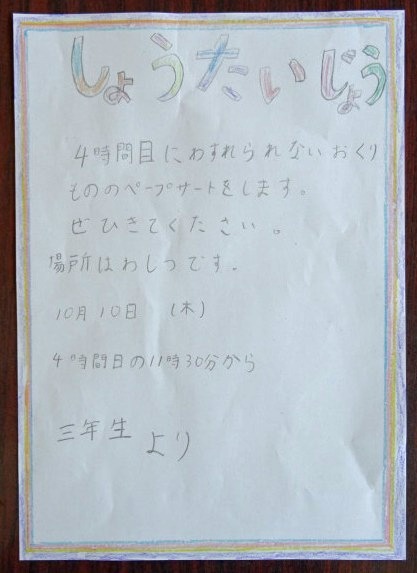 しょうたいじょう
4時間目にわすれられないおくり
もののペープサートをします。
ぜひきてください。
場所はわしつです。
10月10日 (木)
4時間目の11時30分から
三年生より